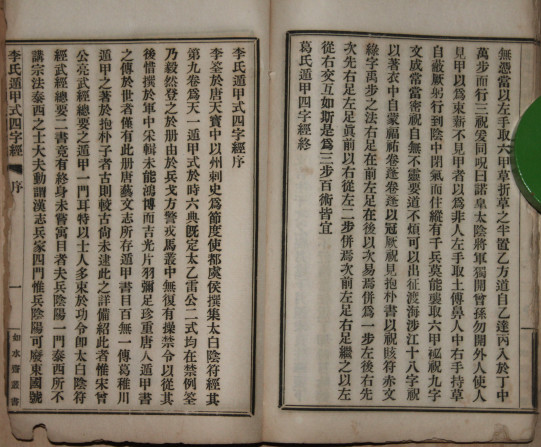 無恙當以左手取六甲草折草之半置乙方道自乙達丙入於丁中
萬步而行三祝爰同呪曰諾皇太陰將軍獨開曾孫勿開外人使人
見甲以為束薪不見甲者以為非人左手取土傅鼻人中右手持草
自蔽厭躬行到陰中閉氣而住縱有千兵莫能襲取六甲祕祝九字
文成當當密祝自無不靈要道不煩可以出征渡海涉江十八字祝
以著衣中自蒙福祐卷蓬卷蓬以冠厭祝見抱朴書以祝眩符赤文
綠字禹步之法右足在前左足在後以次易焉併為一步左後右先
次先右足左足眞前以右從左二步併焉次前左足右足繼之以左
從右交互如斯是為三步百術皆宜
葛氏遁甲四字經終
李氏遁甲式四字經序
李筌於唐天寶中以州刺史為節度使都虞侯撰集太白陰符經其
第九卷為天一遁甲式於時六典旣定太乙雷公二式均在禁例筌
乃毅然登之於册由於兵戈方警戎馬叢中無復有操禁令以從其
後惜撰於軍中采輯未能鴻博而吉光片羽彌足珍重唐人遁甲書
之傳於世者僅有此册唐藝文志所存遁甲書目百無一傳葛稚川
遁甲之著於抱朴子者古則較古尙未逮此之詳備紹此者惟宋曾
公亮武經總要之遁甲一門耳特以士人多束於功令卽太白陰符
經武經總要二書竟有終身未嘗寓目者夫兵陰陽一門泰西所不
講宗法泰西之士大夫動謂漢志兵家四門惟兵陰陽可廢東國號
李氏遁甲式四字經
序
一
如水齋叢書